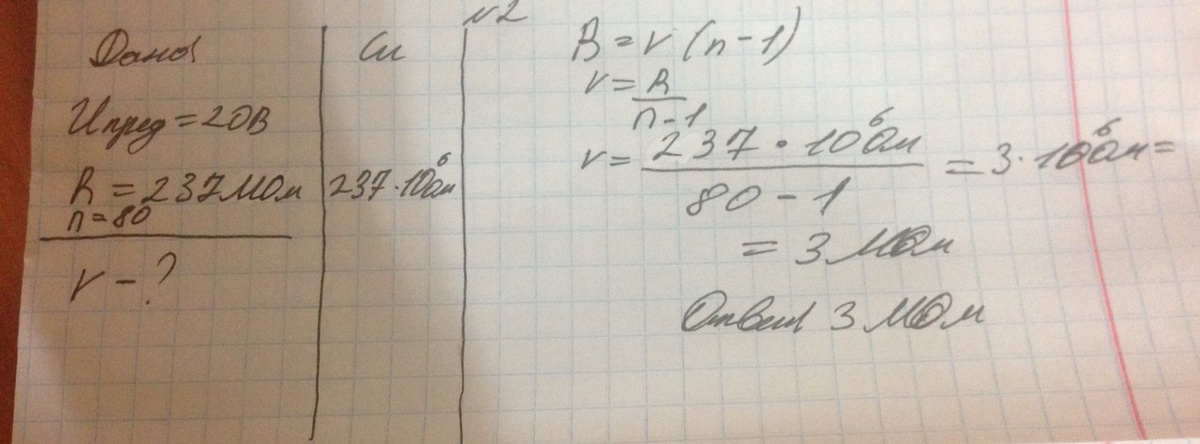 №2
Дано:
Си
Uпред = 20В
R = 237 МОм
237·10⁶Ом
n = 80
r - ?
R = r (n - 1)
r = R / n - 1
r = 237 · 10⁶Ом / 80 - 1 = 3·10⁶Ом =
= 3 МОм
Ответ 3 МОм